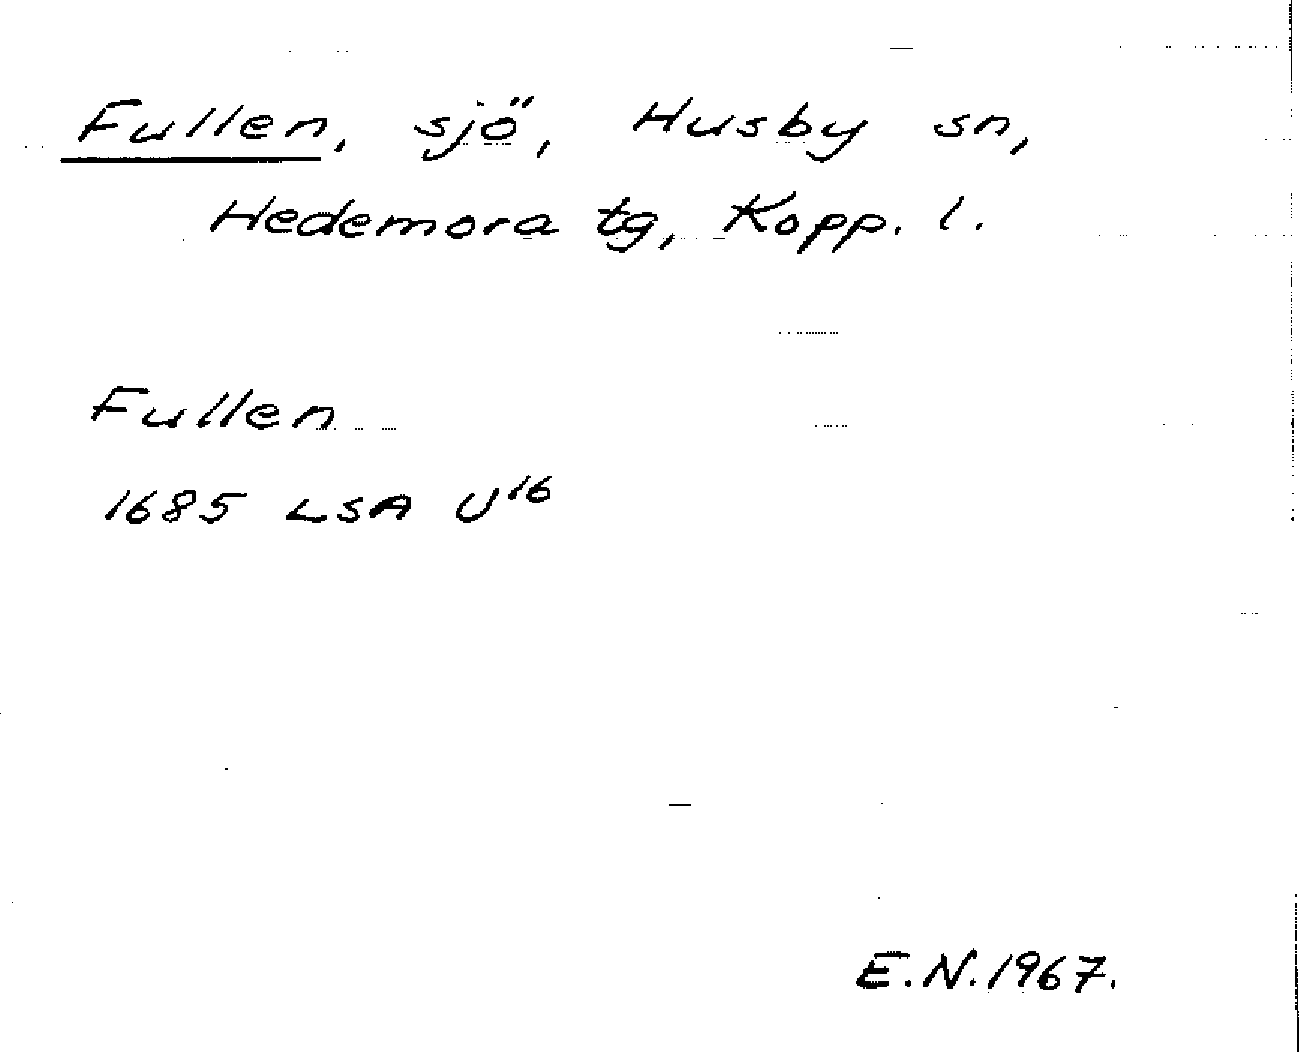 Fullen, sjö, Husby sn,
Hedemora tg, Kopp. l.
Fullen
1685 LSA U16
E.N.1967.